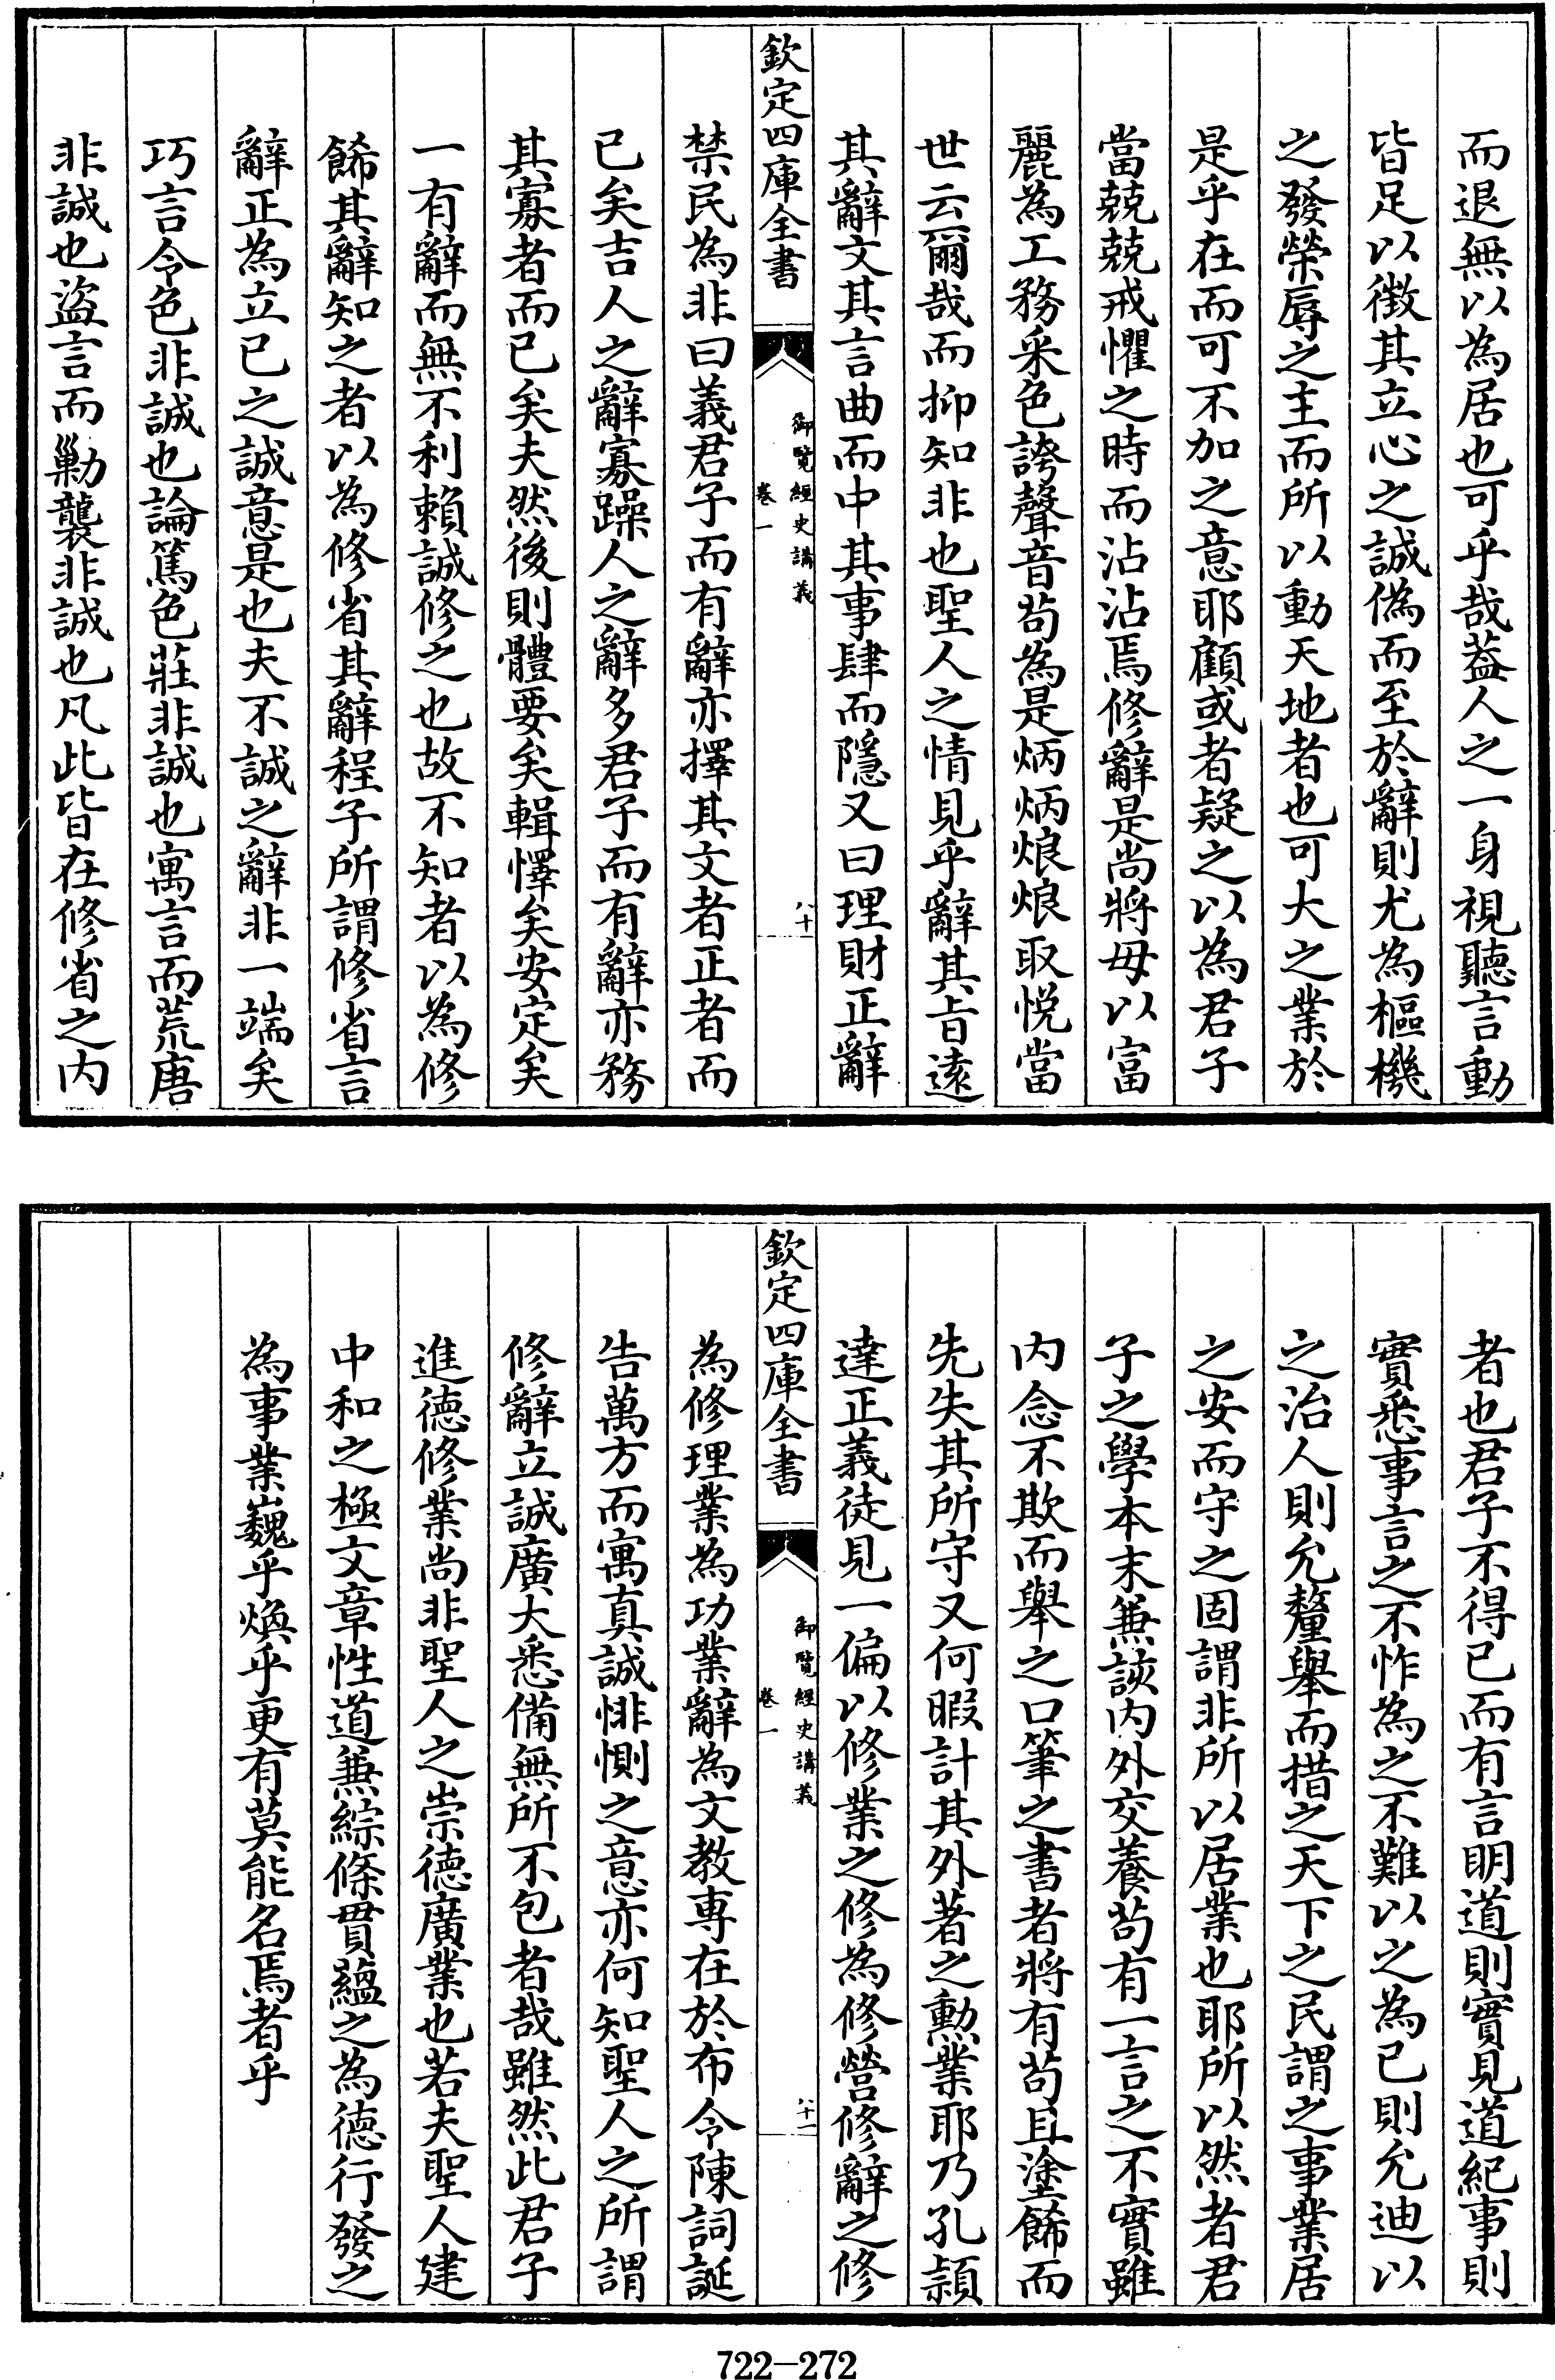 而退無以為居也可乎哉葢人之一身視聽言動
皆足以徴其立心之誠偽而至於辭則尤為樞機
之發榮辱之主而所以動天地者也可大之業於
是乎在而可不加之意耶顧或者疑之以為君子
當兢兢戒懼之時而沾沾焉修辭是尚將毋以富
麗為工務采色誇聲音苟為是炳炳烺烺取悅當
世云爾哉而抑知非也聖人之情見乎辭其旨遠
其辭文其言曲而中其事肆而隱又曰理財正辭
欽定四庫全書
御覽經史講義
卷一
八十
禁民為非曰義君子而有辭亦擇其文者正者而
已矣吉人之辭寡躁人之辭多君子而有辭亦務
其寡者而已矣夫然後則體要矣輯懌矣安定矣
一有辭而無不利賴誠修之也故不知者以為修
餙其辭知之者以為修省其辭程子所謂修省言
辭正為立已之誠意是也夫不誠之辭非一端矣
巧言令色非誠也論篤色莊非誠也寓言而荒唐
非誠也盜言而勦襲非誠也凡此皆在修省之內
者也君子不得已而有言明道則實見道紀事則
實悉事言之不怍為之不難以之為已則允迪以
之治人則允釐舉而措之天下之民謂之事業居
之安而守之固謂非所以居業也耶所以然者君
子之學本末兼該内外交養苟有一言之不實雖
内念不欺而舉之口筆之書者將有苟且塗餙而
先失其所守又何暇計其外著之勲業耶乃孔穎
達正義徒見一偏以修業之修為修營修辭之修
欽定四庫全書
御覽經史講義
卷一
八十一
為修理業為功業辭為文教專在於布令陳詞誕
告萬方而寓真誠悱惻之意亦何知聖人之所謂
修辭立誠廣大悉備無所不包者哉雖然此君子
進徳修業尚非聖人之崇徳廣業也若夫聖人建
中和之極文章性道兼綜條貫蘊之為徳行發之
為事業巍乎煥乎更有莫能名焉者乎
722-272